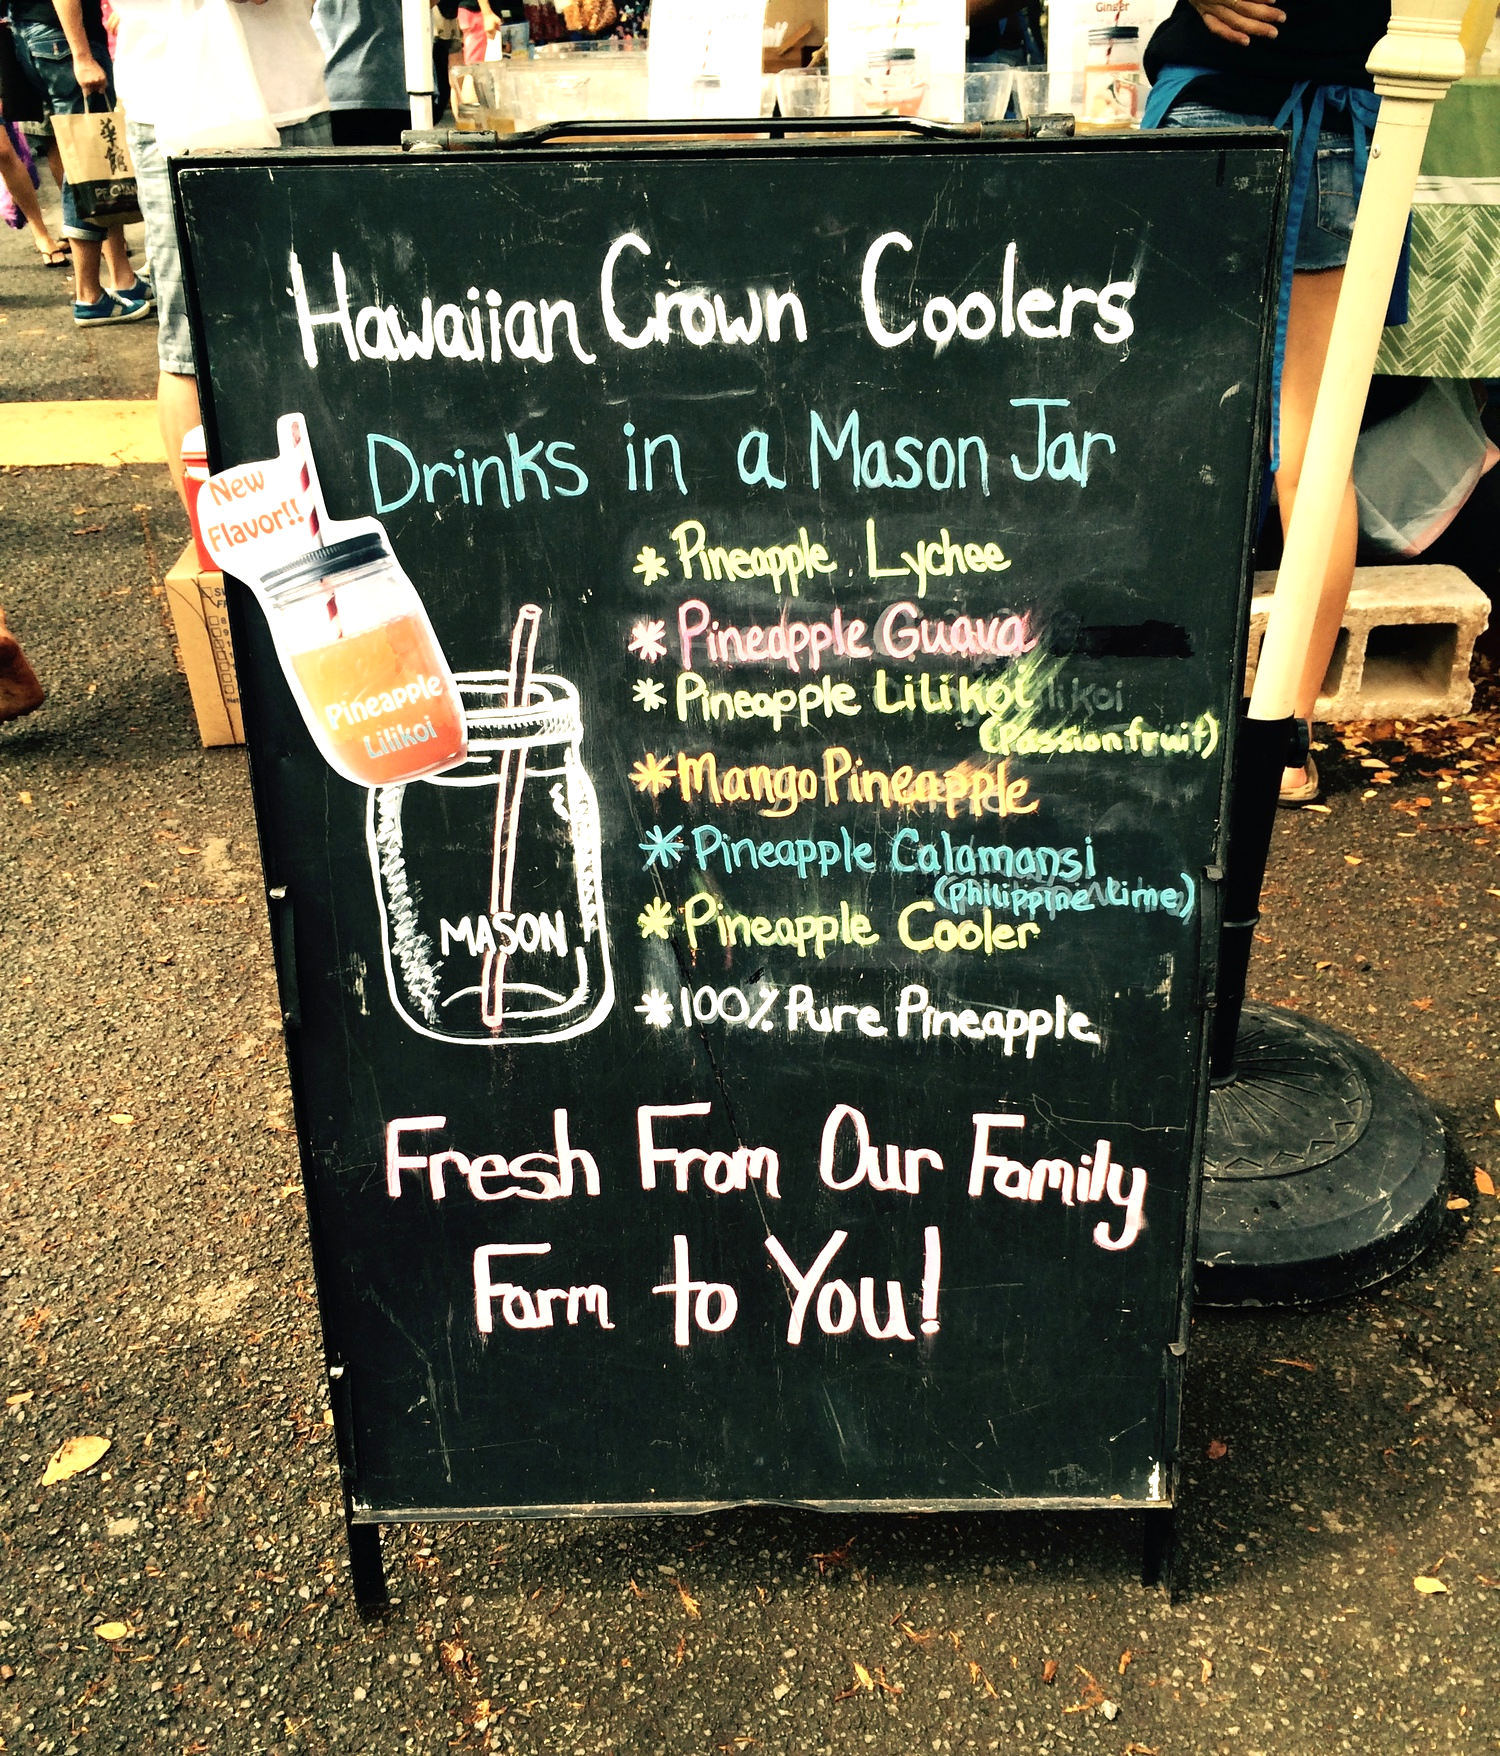 Ginger
Hawaiian Crown Coolers
Drinks in a Mason Jar
New
Flavor!!
Pineapple
Lilikoi
MASON
* Pineapple Lychee
* Pineapple Guava
* Pineapple LiLiKoi
(Passionfruit)
* Mango Pineapple
* Pineapple Calamansi
(philippine Lime)
* Pineapple Cooler
* 100% Pure Pineapple
Fresh From Our Family
Farm to You!